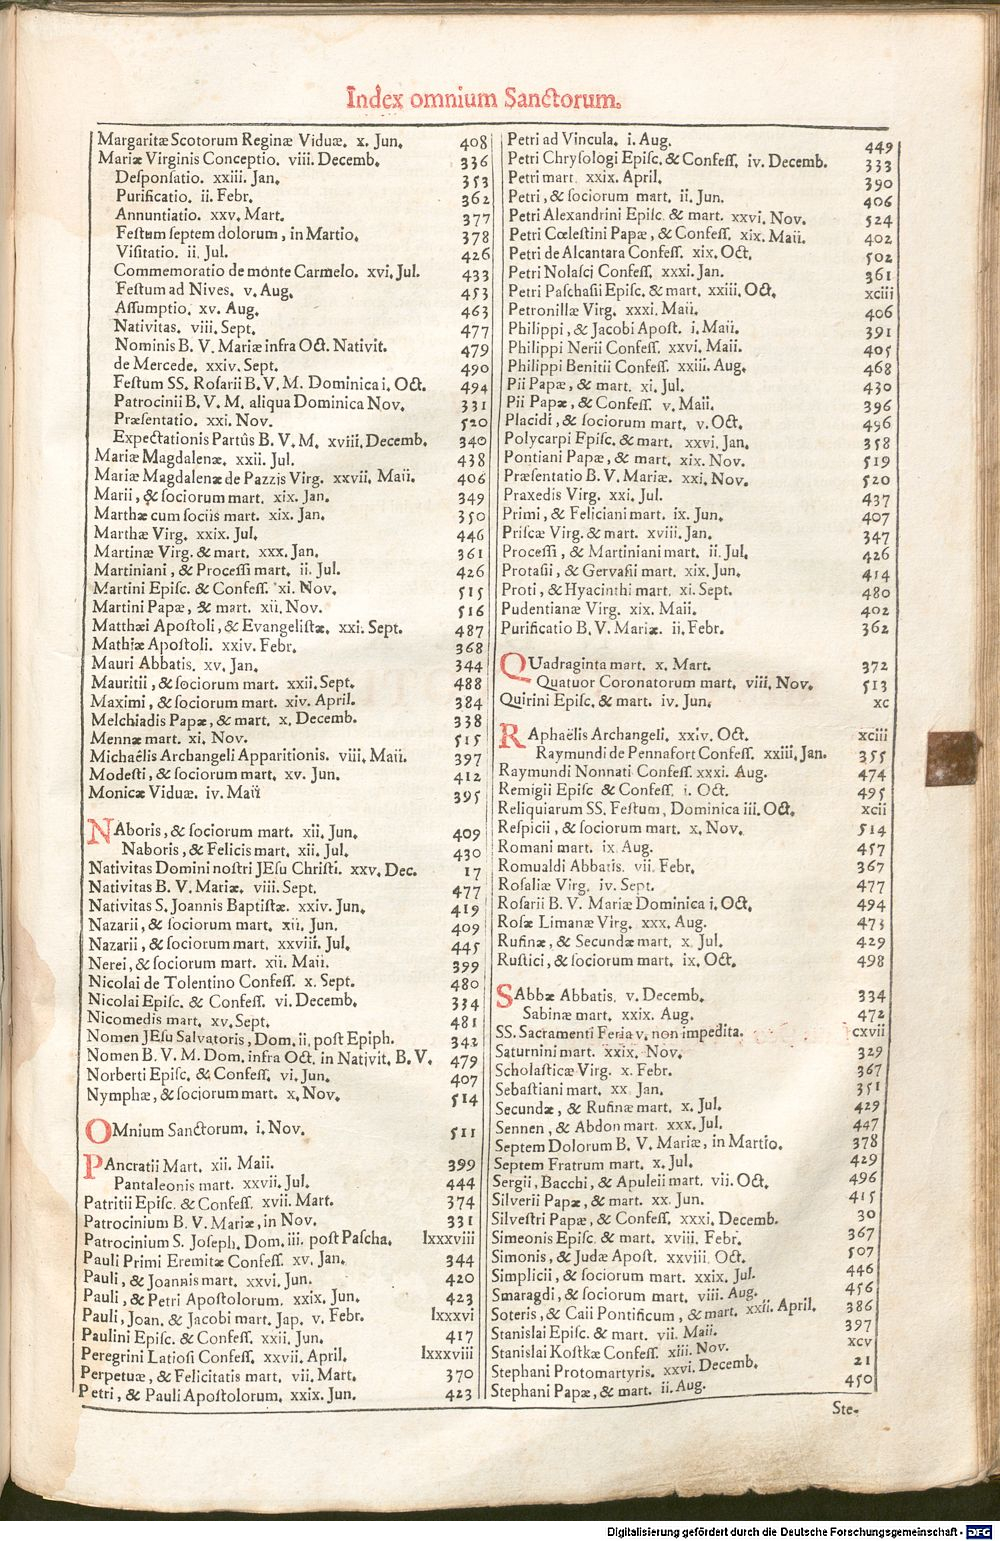 Index omnium Sanctorum.
Margaritæ Scotorum Reginæ Viduæ. x. Jun. 408
Mariæ Virginis Conceptio. viii. Decemb. 336
Desponsatio. xxiii. Jan. 353
Purificatio. ii. Febr. 362
Annuntiatio. xxv. Mart. 377
Festum septem dolorum, in Martio. 378
Visitatio. ii. Jul. 426
Commemoratio de monte Carmelo. xvi. Jul. 433
Festum ad Nives. v. Aug. 453
Assumptio. xv. Aug. 463
Nativitas. viii. Sept. 477
Nominis B. V. Mariæ infra Oct. Nativit. 479
de Mercede. xxiv. Sept. 490
Festum SS. Rosarii B. V. M. Dominica i. Oct. 494
Patrocinii B. V. M. aliqua Dominica Nov. 331
Præsentatio. xxi. Nov. 520
Expectationis Partûs B. V. M. xviii. Decemb. 340
Mariæ Magdalenæ. xxii. Jul. 438
Mariæ Magdalenæ de Pazzis Virg. xxvii. Maii. 406
Marii, & sociorum mart. xix. Jan. 349
Marthæ cum sociis mart. xix. Jan. 350
Marthæ Virg. xxix. Jul. 446
Martinæ Virg. & mart. xxx. Jan. 361
Martiniani, & Processi mart. ii. Jul. 426
Martini Episc. & Confess. xi. Nov. 515
Martini Papæ, & mart. xii. Nov. 516
Matthæi Apostoli, & Evangelistæ. xxi. Sept. 487
Mathiæ Apostoli. xxiv. Febr. 368
Mauri Abbatis. xv. Jan. 344
Mauritii, & sociorum mart. xxii. Sept. 488
Maximi, & sociorum mart. xiv. April. 384
Melchiadis Papæ, & mart. x. Decemb. 338
Mennæ mart. xi. Nov. 515
Michaëlis Archangeli Apparitionis. viii. Maii. 397
Modesti, & sociorum mart. xv. Jun. 412
Monicæ Viduæ. iv. Maii 395
NAboris, & sociorum mart. xii. Jun. 409
Naboris, & Felicis mart. xii. Jul. 430
Nativitas Domini nostri JEsu Christi. xxv. Dec. 17
Nativitas B. V. Mariæ. viii. Sept. 477
Nativitas S. Joannis Baptistæ. xxiv. Jun. 419
Nazarii, & sociorum mart. xii. Jun. 409
Nazarii, & sociorum mart. xxviii. Jul. 445
Nerei, & sociorum mart. xii. Maii. 399
Nicolai de Tolentino Confess. x. Sept. 480
Nicolai Episc. & Confess. vi. Decemb. 334
Nicomedis mart. xv. Sept. 481
Nomen JEsu Salvatoris, Dom. ii. post Epiph. 342
Nomen B. V. M. Dom. infra Oct. in Nativit. B. V. 479
Norberti Episc. & Confess. vi. Jun. 407
Nymphæ, & sociorum mart. x. Nov. 514
OMnium Sanctorum. i. Nov. 511
PAncratii Mart. xii. Maii. 399
Pantaleonis mart. xxvii. Jul. 444
Patritii Episc. & Confess. xvii. Mart. 374
Patrocinium B. V. Mariæ, in Nov. 331
Patrocinium S. Joseph. Dom. iii. post Pascha. lxxxviii
Pauli Primi Eremitæ Confess. xv. Jan. 344
Pauli, & Joannis mart. xxvi. Jun. 420
Pauli, & Petri Apostolorum. xxix. Jun. 423
Pauli, Joan. & Jacobi mart. Jap. v. Febr. lxxxvi
Paulini Episc. & Confess. xxii. Jun. 417
Peregrini Latiosi Confess. xxvii. April. lxxxviii
Perpetuæ, & Felicitatis mart. vii. Mart. 370
Petri, & Pauli Apostolorum. xxix. Jun. 423
Petri ad Vincula. i. Aug. 449
Petri Chrysologi Episc. & Confess. iv. Decemb. 333
Petri mart. xxix. April. 390
Petri, & sociorum mart. ii. Jun. 406
Petri Alexandrini Episc. & mart. xxvi. Nov. 524
Petri Cœlestini Papæ, & Confess. xix. Maii. 402
Petri de Alcantara Confess. xix. Oct. 502
Petri Nolasci Confess. xxxi. Jan. 361
Petri Paschasii Episc. & mart. xxiii. Oct. xciii
Petronillæ Virg. xxxi. Maii. 406
Philippi, & Jacobi Apost. i. Maii. 391
Philippi Nerii Confess. xxvi. Maii. 405
Philippi Benitii Confess. xxiii. Aug. 468
Pii Papæ, & mart. xi. Jul. 430
Pii Papæ, & Confess. v. Maii. 396
Placidi, & sociorum mart. v. Oct. 496
Polycarpi Episc. & mart. xxvi. Jan. 358
Pontiani Papæ, & mart. xix. Nov. 519
Præsentatio B. V. Mariæ. xxi. Nov. 520
Praxedis Virg. xxi. Jul. 437
Primi, & Feliciani mart. ix. Jun. 407
Priscæ Virg. & mart. xviii. Jan. 347
Processi, & Martiniani mart. ii. Jul. 426
Protasii, & Gervasii mart. xix. Jun. 414
Proti, & Hyacinthi mart. xi. Sept. 480
Pudentianæ Virg. xix. Maii. 402
Purificatio B. V. Mariæ. ii. Febr. 362
QUadraginta mart. x. Mart. 372
Quatuor Coronatorum mart. viii. Nov. 513
Quirini Episc. & mart. iv. Jun. xc
RAphaëlis Archangeli. xxiv. Oct. xciii
Raymundi de Pennafort Confess. xxiii. Jan. 355
Raymundi Nonnati Confess. xxxi. Aug. 474
Remigii Episc & Confess. i. Oct. 495
Reliquiarum SS. Festum, Dominica iii. Oct. xcii
Respicii, & sociorum mart. x. Nov. 514
Romani mart. ix. Aug. 457
Romualdi Abbatis. vii. Febr. 367
Rosaliæ Virg. iv. Sept. 477
Rosarii B. V. Mariæ Dominica i. Oct. 494
Rosæ Limanæ Virg. xxx. Aug. 473
Rufinæ, & Secundæ mart. x. Jul. 429
Rustici, & sociorum mart. ix. Oct. 498
SAbbæ Abbatis. v. Decemb. 334
Sabinæ mart. xxix. Aug. 472
SS. Sacramenti Feria v. non impedita. cxvii
Saturnini mart. xxix. Nov. 329
Scholasticæ Virg. x. Febr. 367
Sebastiani mart. xx. Jan. 351
Secundæ, & Rufinæ mart. x. Jul. 429
Sennen, & Abdon mart. xxx. Jul. 447
Septem Dolorum B. V. Mariæ, in Martio. 378
Septem Fratrum mart. x. Jul. 429
Sergii, Bacchi, & Apuleii mart. vii. Oct. 496
Silverii Papæ, & mart. xx. Jun. 415
Silvestri Papæ, & Confess. xxxi. Decemb. 30
Simeonis Episc. & mart. xviii. Febr. 367
Simonis, & Judæ Apost. xxviii. Oct. 507
Simplicii, & sociorum mart. xxix. Jul. 446
Smaragdi, & sociorum mart. viii. Aug. 456
Soteris, & Caii Pontificum, & mart. xxii. April. 386
Stanislai Episc. & mart. vii. Maii. 397
Stanislai Kostkæ Confess. xiii. Nov. xcv
Stephani Protomartyris. xxvi. Decemb. 21
Stephani Papæ, & mart. ii. Aug. 450
Ste-
Digitalisierung gefördert durch die Deutsche Forschungsgemeinschaft - DFG